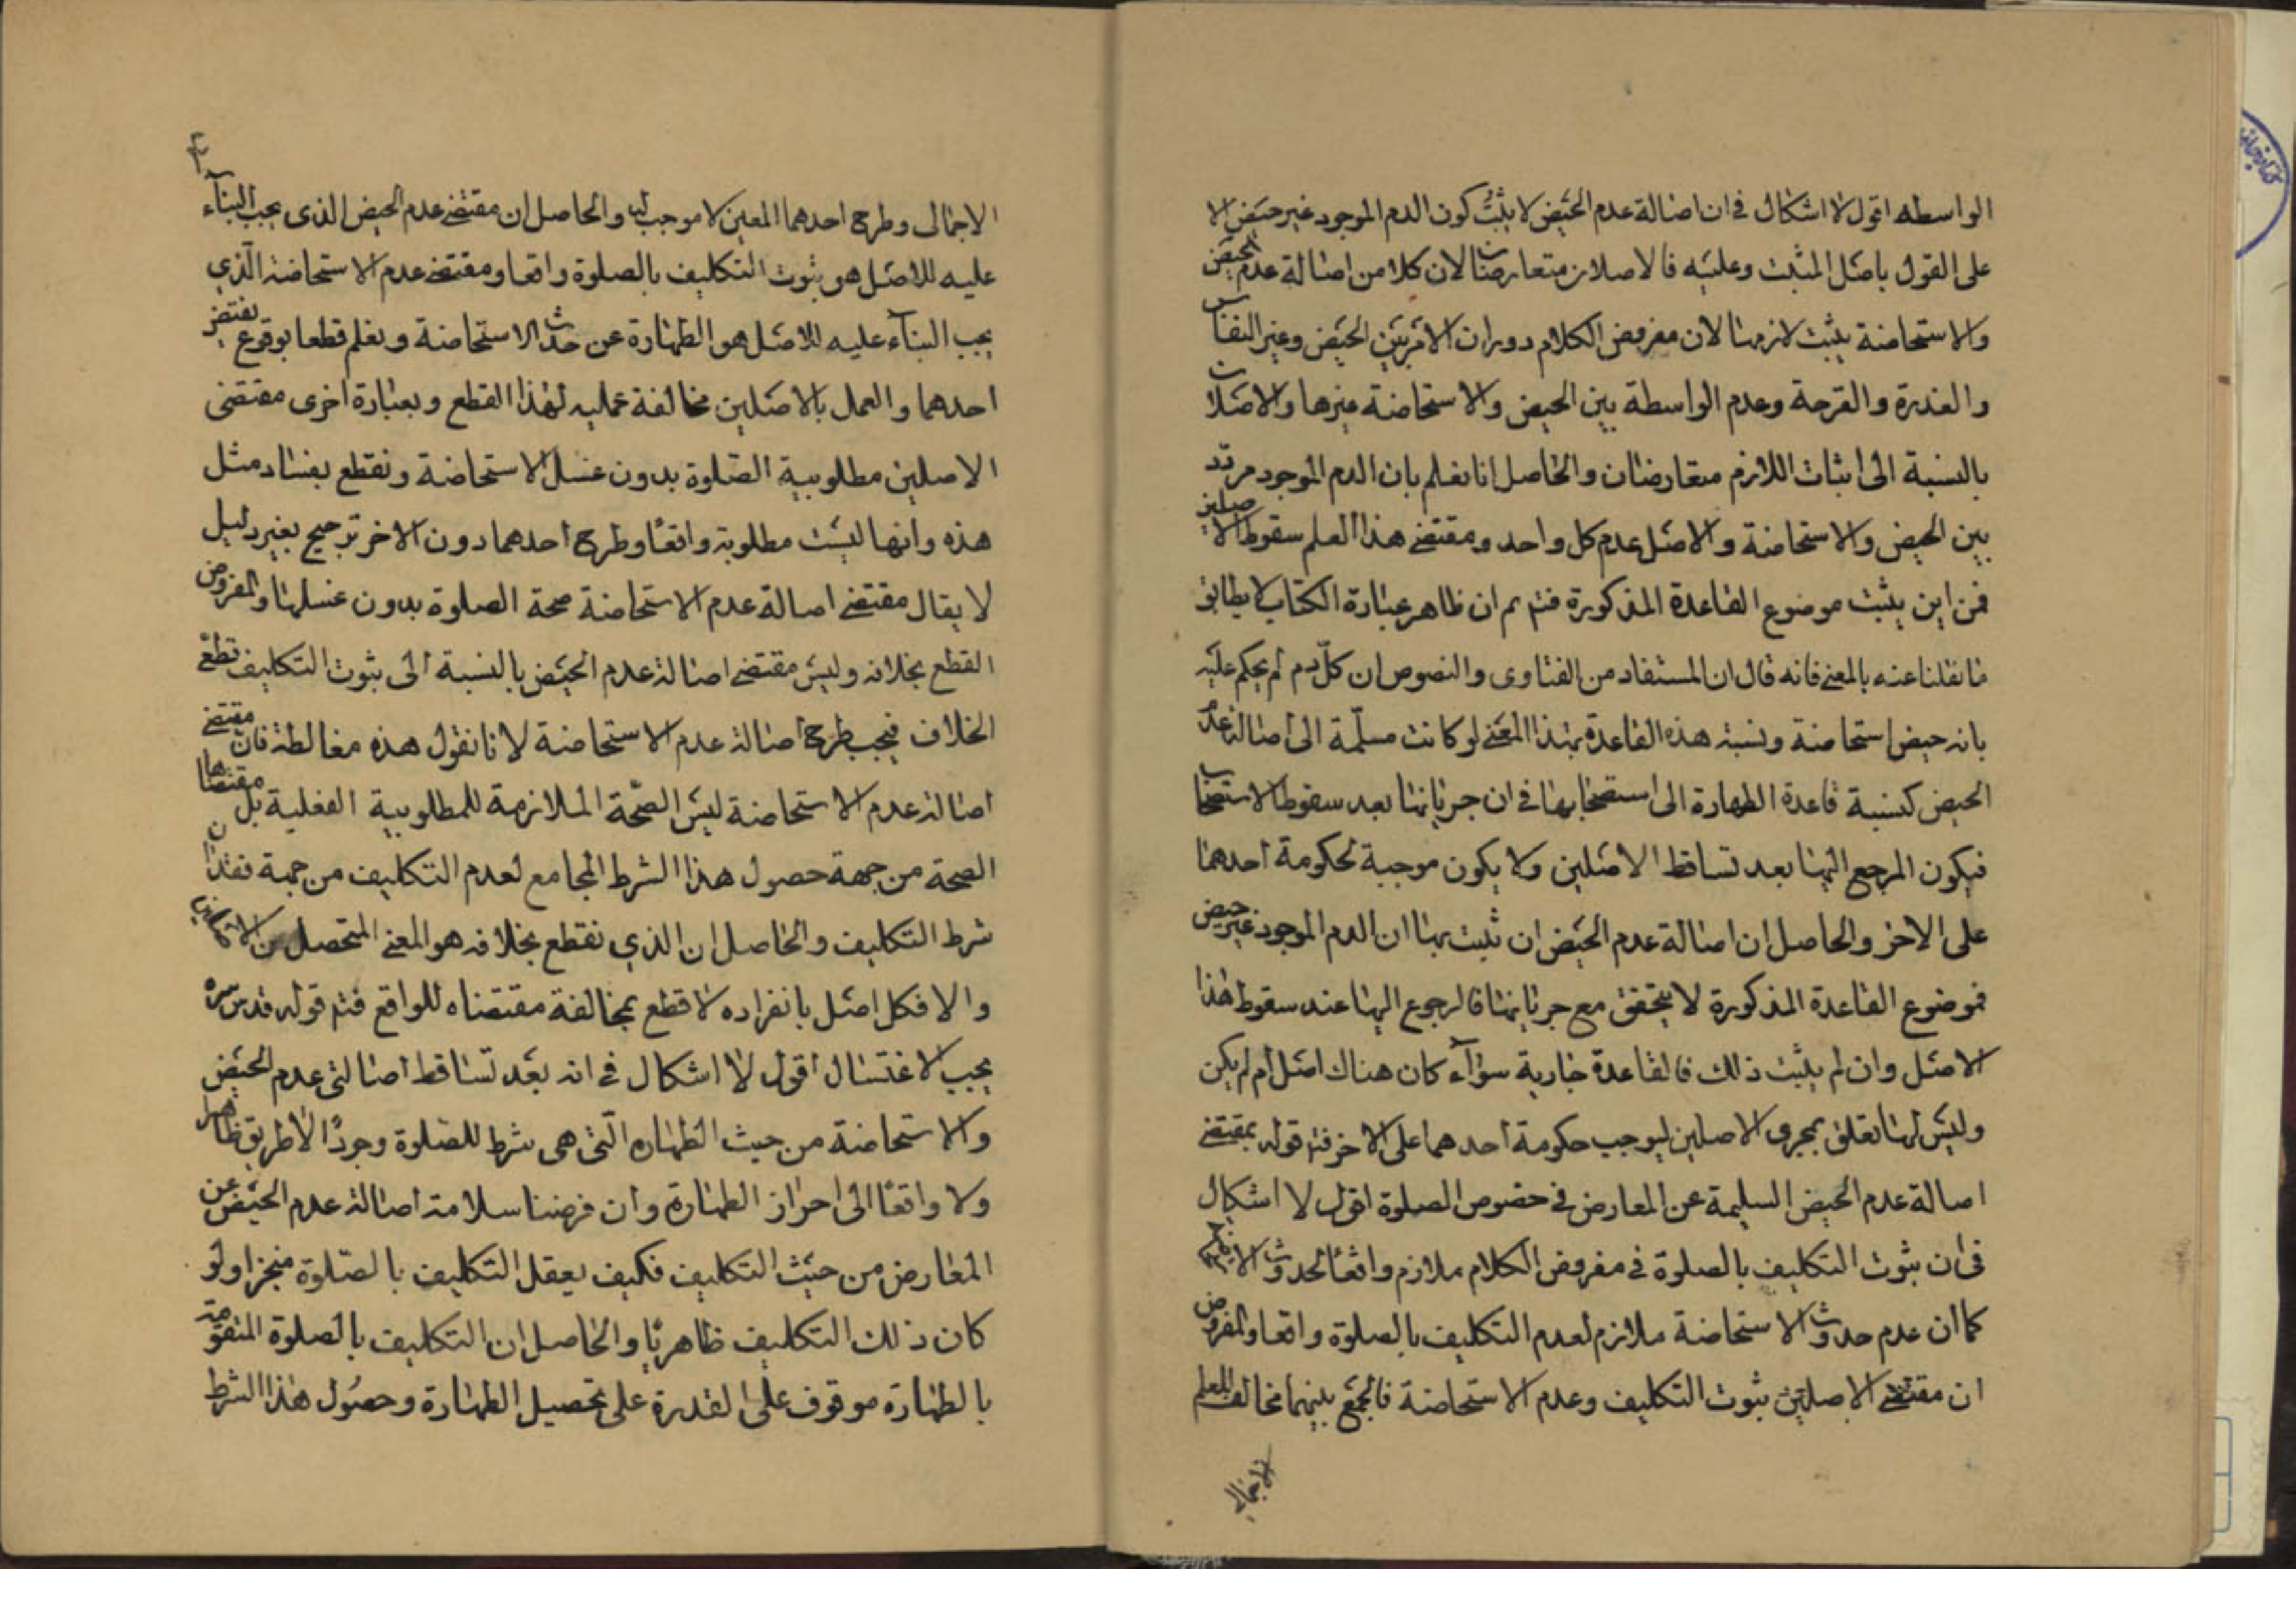 الواسطه اقول لا اشكال في ان اصالة عدم الحيض لا يثبت كون الدم الموجود غير حيض الا
على القول باصل المثبت وعليه فالاصلان متعارضان لان كلا من اصالة عدم الحيض
والاستحاضة يثبت لازمها لان مفروض الكلام دوران الامر بين الحيض وغير النفاس
والعذرة والقرحة وعدم الواسطة بين الحيض والاستحاضة غيرها والاصلان
بالنسبة الى اثبات اللازم متعارضان والحاصل انا نعلم بان الدم الموجود مردد
بين الحيض والاستحاضة والاصل عدم كل واحد ومقتضى هذا العلم سقوط الاصلين
فمن اين يثبت موضوع القاعدة المذكورة فتم ثم ان ظاهر عبارة الكتاب لا يطابق
ما نقلنا عنه بالمعنى فانه قال ان المستفاد من الفتاوى والنصوص ان كل دم لم يحكم عليه
بانه حيض استحاضة ونسبة هذه القاعدة بهذا المعنى لو كانت مسلمة الى اصالة عدم
الحيض كنسبة قاعدة الطهارة الى استصحابها في ان جريانها بعد سقوط الاستصحاب
فيكون المرجع اليها بعد تساقط الاصلين ولا يكون موجبة لحكومة احدهما
على الاخر والحاصل ان اصالة عدم الحيض ان ثبت بها ان الدم الموجود غير حيض
فموضوع القاعدة المذكورة لا يتحقق مع جريانها فالرجوع اليها عند سقوط هذا
الاصل وان لم يثبت ذلك فالقاعدة جارية سوآء كان هناك اصل ام لم يكن
وليس لها تعلق بمجرى الاصلين ليوجب حكومة احدهما على الاخر فتم قوله بمقتضى
اصالة عدم الحيض السليمة عن المعارض في خصوص الصلوة اقول لا اشكال
في ان ثبوت التكليف بالصلوة في مفروض الكلام ملازم واقعًا لحدوث
كما ان عدم حدوث الاستحاضة ملازم لعدم التكليف بالصلوة واقعا والمفروض
ان مقتضى الاصلين ثبوت التكليف وعدم الاستحاضة فالجمع بينهما مخالف للعلم
الاجمالى
٤
الاجمالى وطرح احدهما المعين لا موجب له والحاصل ان مقتضى عدم الحيض الذى يجب البنآء
عليه للاصل هو ثبوت التكليف بالصلوة واقعا ومقتضى عدم الاستحاضة الّذي
يجب البنآء عليه للاصل هو الطهارة عن حدث الاستحاضة ونعلم قطعا بوقوع نقيض
احدهما والعمل بالاصلين مخالفة عمليه لهذا القطع وبعبارة اخرى مقتضى
الاصلين مطلوبية الصلوة بدون غسل الاستحاضة ونقطع بفساد مثل
هذه وانها ليست مطلوبة واقعًا وطرح احدهما دون الاخر ترجيح بغير دليل
لا يقال مقتضى اصالة عدم الاستحاضة صحة الصلوة بدون غسلها والمفروض
القطع بخلافه وليس مقتضى اصالة عدم الحيض بالنسبة الى ثبوت التكليف قطعى
الخلاف فيجب طرح اصالة عدم الاستحاضة لانا نقول هذه مغالطة فان مقتضى
اصالة عدم الاستحاضة ليس الصحّة الملازمة للمطلوبية الفعلية بل مقتضاها
الصحة من جهة حصول هذا الشرط المجامع لعدم التكليف من جهة فقدان
شرط التكليف والحاصل ان الذي نقطع بخلافه هو المعنى المتحصل من الاصلين
والا فكل اصل بانفراده لا قطع بمخالفة مقتضاه للواقع فتم قوله قدس سره
يجب الاغتسال اقول لا اشكال في انه بعد تساقط اصالتى عدم الحيض
والاستحاضة من حيث الطهاره الّتى هى شرط للصلوة وجودًا لا طريق ظاهرا
ولا واقعًا الى احراز الطهارة وان فرضنا سلامة اصالة عدم الحيض عن
المعارض من حيث التكليف فكيف يعقل التكليف بالصلوة منجزا ولو
كان ذلك التكليف ظاهريًا والحاصل ان التكليف بالصلوة المتقومة
بالطهارة موقوف على القدرة على تحصيل الطهارة وحصول هذا الشرط